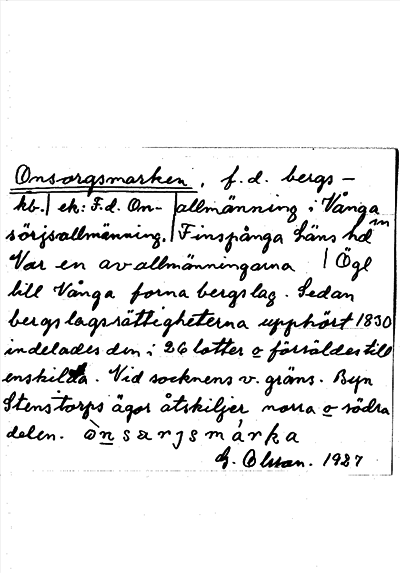 Onsorgsmarken, f.d. bergs-
kb. | ek: F.d. On- | allmänning i Vånga sn
sörjsallmänning. | Finspånga läns hd
Var en av allmänningarna | Ögl
till Vånga forna bergslag. Sedan
bergslagsrättigheterna upphört 1830
indelades den i 26 lotter o försåldes till
enskilda. Vid socknens v. gräns. Byn
Stenstorps ägor åtskiljer norra o södra
delen. ònsarjsmárka
G. Olsson. 1927